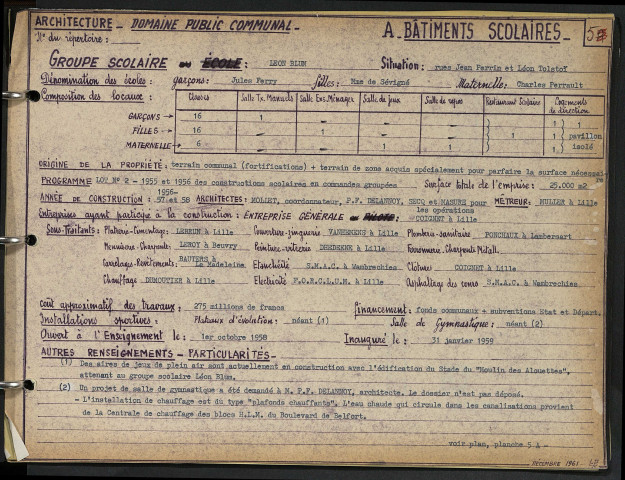 ARCHITECTURE - DOMAINE PUBLIC COMMUNAL - A - BÂTIMENTS SCOLAIRES - 5
N° du répertoire :
GROUPE SCOLAIRE ou ÉCOLE : LEON BLUM Situation : rues Jean Perrin et Léon Tolstoï
Dénomination des écoles : garçons : Jules Ferry filles : Mme de Sévigné Maternelle : Charles Perrault
Composition des locaux : Classes Salle Tx. Manuels Salle Ens. Ménager Salle de jeux Salle de repos Restaurant Scolaire Logements de direction
GARÇONS → 16 1 1
FILLES → 16 1 1 1 pavillon
MATERNELLE → 6 1 1 1 isolé
ORIGINE DE LA PROPRIÉTÉ : terrain communal (fortifications) + terrain de zone acquis spécialement pour parfaire la surface nécessaire
PROGRAMME LOT N° 2 - 1955 et 1956 des constructions scolaires en commandes groupées Surface totale de l'emprise : 25.000 m2
1956-
ANNÉE DE CONSTRUCTION : 57 et 58 ARCHITECTES : MOLLET, coordonnateur, P.F. DELANNOY, SECQ et MASURE pour MÉTREUR : MULLER à Lille
les opérations
Entreprises ayant participé à la construction : ENTREPRISE GÉNÉRALE ou PILOTE : COIGNET à Lille
Sous-Traitants : Plâtrerie-Cimentage : LEBRUN à Lille Couverture-zinguerie VANESMENS à Lille Plomberie-sanitaire PONCHAUX à Lambersart
Menuiserie-Charpente LEROY à Beuvry Peinture-vitrerie DHEDEENE à Lille Ferronnerie-Charpente Métall.
Carrelages-Revêtements : BAUTERS à La Madeleine Etanchéité S.M.A.C. à Wambrechies Clôtures COIGNET à Lille
Chauffage DUMOUTIER à Lille Electricité F.O.R.C.L.U.M. à Lille Asphaltage des cours S.M.A.C. à Wambrechies
Coût approximatif des travaux : 275 millions de francs Financement : fonds communaux + subventions Etat et Départ.
Installations sportives : Plateaux d'évolution : néant (1) Salle de Gymnastique : néant (2)
Ouvert à l'Enseignement le : 1er octobre 1958 Inauguré le : 31 janvier 1959
AUTRES RENSEIGNEMENTS - PARTICULARITÉS -
(1) Des aires de jeux de plein air sont actuellement en construction avec l'édification du Stade du "Moulin des Alouettes",
attenant au groupe scolaire Léon Blum.
(2) Un projet de salle de gymnastique a été demandé à M. P.F. DELANNOY, architecte. Le dossier n'est pas déposé.
- L'installation de chauffage est du type "plafonds chauffants". L'eau chaude qui circule dans les canalisations provient
de la Centrale de chauffage des blocs H.L.M. du Boulevard de Belfort.
voir plan, planche 5 A -
DÉCEMBRE 1961